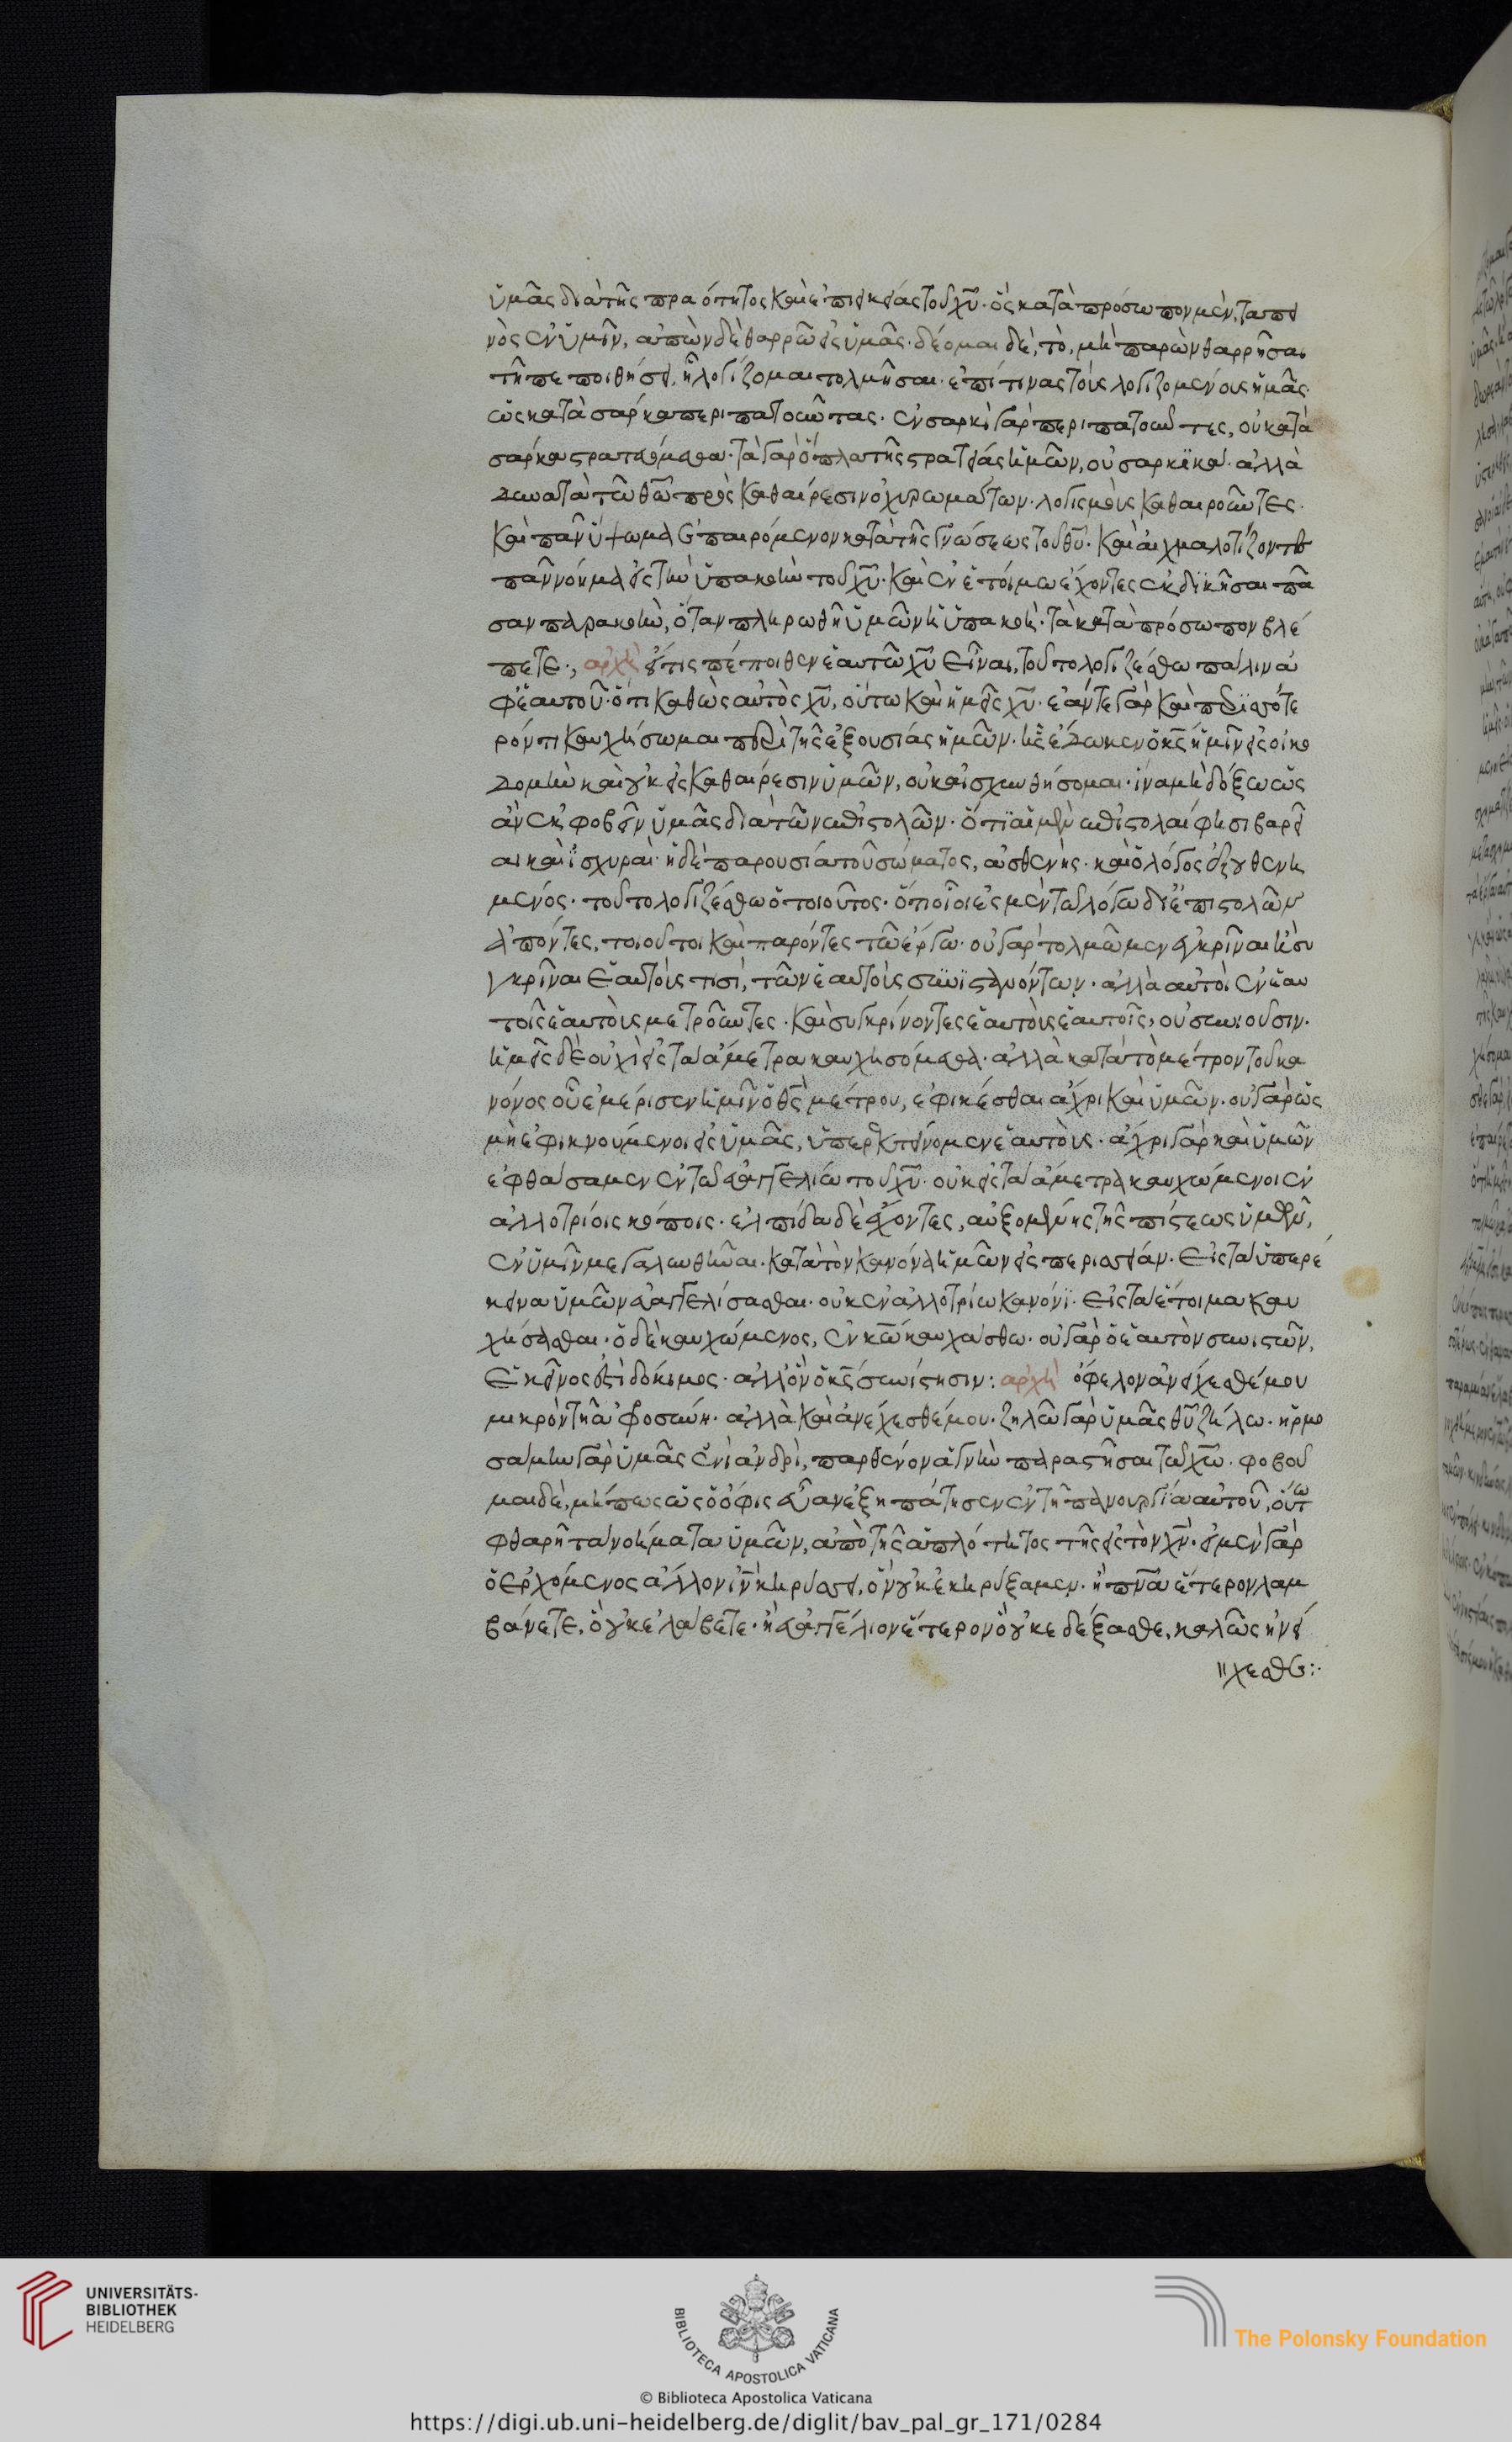 ὑμᾶς διὰ τῆς πραότητος καὶ ἐπιεικείας τοῦ χῦ· ὃς κατὰ πρόσωπον μὲν, ταπει
νὸς ἐν ὑμῖν, ἀπὼν δὲ θαρρῶ εἰς ὑμᾶς· δέομαι δὲ, τὸ, μὴ παρὼν θαρρῆσαι
τῆ πεποιθήσει, ἧ λογίζομαι τολμῆσαι· ἐπί τινας τοὺς λογιζομένους ἡμᾶς
ὡς κατὰ σάρκα περιπατοῦντας· ἐν σαρκὶ γὰρ περιπατοῦντες, οὐ κατὰ
σάρκα στρατευόμεθα· τὰ γὰρ ὅπλα τῆς στρατείας ἡμῶν, οὐ σαρκϊκά· ἀλλὰ
δυνατὰ τῶ θῶ πρὸς καθαίρεσιν ὀχυρωμάτων· λογισμοὺς καθαιροῦντες·
καὶ πᾶν ὕψωμα ἐπαιρόμενον κατὰ τῆς γνώσεως τοῦ θῦ· καὶ αἰχμαλωτίζοντες
πᾶν νόημα εἰς τὴν ὑπακοὴν τοῦ χῦ· καὶ ἐν ἑτοίμω ἔχοντες ἐκδϊκῆσαι πᾶ
σαν παρακοὴν, ὅταν πληρωθῆ ὑμῶν ἡ ὑπακοή· τὰ κατὰ πρόσωπον βλέ
πετε·, ἀρχὴ εἴ τις πέποιθεν ἑαυτῶ χῦ εἶναι, τοῦτο λογιζέσθω πάλιν ἀ
φ' ἑαυτοῦ· ὅτι καθὼς αὐτὸς χῦ, οὕτω καὶ ἡμεῖς χῦ· ἐάν τε γὰρ καὶ περισσότε
ρόν τι καυχήσωμαι περὶ τῆς ἐξουσίας ἡμῶν· ἧς ἔδωκεν ὁ κς ἡμῖν εἰς οἰκο
δομὴν καὶ οὐκ εἰς καθαίρεσιν ὑμῶν, οὐκ αἰσχυνθήσομαι· ἵνα μὴ δόξω ὡς
ἂν ἐκφοβεῖν ὑμᾶς διὰ τῶν ἐπιστολῶν· ὅτι αἱ μὲν ἐπιστολαί φησι βαρεῖ
αι καὶ ἰσχυραί· ἡ δὲ παρουσία τοῦ σώματος, ἀσθενὴς· καὶ ὁ λόγος ἐξουθενη
μένος· τοῦτο λογιζέσθω ὁ τοιοῦτος· ὅτι οἷοί ἐσμεν τῶ λόγω δι' ἐπιστολῶν
ἀπόντες, τοιοῦτοι καὶ παρόντες τῶ ἔργω· οὐ γὰρ τολμῶμεν ἐγκρῖναι ἢ συ
γκρῖναι ἑαυτούς τισι, τῶν ἑαυτοὺς συνϊστανόντων· ἀλλὰ αὐτοὶ ἐν ἑαυ
τοῖς ἑαυτοὺς μετροῦντες· καὶ συγκρίνοντες ἑαυτοὺς ἑαυτοῖς, οὐ συνιοῦσιν·
ἡμεῖς δὲ οὐχὶ εἰς τὰ ἄμετρα καυχησόμεθα· ἀλλὰ κατὰ τὸ μέτρον τοῦ κα
νόνος οὗ ἐμέρισεν ἡμῖν ὁ θς μέτρου, ἐφικέσθαι ἄχρι καὶ ὑμῶν· οὐ γὰρ ὡς
μὴ ἐφικνούμενοι εἰς ὑμᾶς, ὑπερεκτείνομεν ἑαυτούς· ἄχρι γὰρ καὶ ὑμῶν
ἐφθάσαμεν ἐν τῶ εὐαγγελίω τοῦ χῦ· οὐκ εἰς τὰ ἄμετρα καυχώμενοι ἐν
ἀλλοτρίοις κόποις· ἐλπίδα δὲ ἔχοντες, αὐξομένης τῆς πίστεως ὑμῶν,
ἐν ὑμῖν μεγαλυνθῆναι· κατὰ τὸν κανόνα ἡμῶν εἰς περισσείαν· εἰς τὰ ὑπερέ
κεινα ὑμῶν εὐαγγελίσασθαι· οὐκ ἐν ἀλλοτρίω κανόνϊ· εἰς τὰ ἕτοιμα καυ
χήσασθαι· ὁ δὲ καυχώμενος, ἐν κῶ καυχάσθω· οὐ γὰρ ὁ ἑαυτὸν συνιστῶν,
ἐκεῖνος ἐστὶ δόκιμος· ἀλλ' ὃν ὁ κς συνίστησιν: ἀρχὴ ὄφελον ἀνείχεσθέ μου
μικρόν τι ἀφροσύνη· ἀλλὰ καὶ ἀνέχεσθέ μου· ζηλῶ γὰρ ὑμᾶς θῦ ζήλω· ἡρμο
σάμην γὰρ ὑμᾶς ἑνὶ ἀνδρὶ, παρθένον ἁγνὴν παραστῆσαι τῶ χῶ· φοβοῦ
μαι δὲ, μήπως ὡς ὁ ὄφις εὔαν ἐξηπάτησεν ἐν τῆ πανουργία αὐτοῦ, οὕτω
φθαρῆ τὰ νοήματα ὑμῶν, ἀπὸ τῆς ἁπλότητος τῆς εἰς τὸν χν· εἰ μὲν γὰρ
ὁ ἐρχόμενος ἄλλον ιν κηρύσσει, ὃν οὐκ ἐκηρύξαμεν· ἢ πνα ἕτερον λαμ
βάνετε, ὃ οὐκ ἐλάβετε· ἢ εὐαγγέλιον ἕτερον ὃ οὐκ ἐδέξασθε, καλῶς ἠνεί
χεσθε:·
UNIVERSITÄTS-
BIBLIOTHEK
HEIDELBERG
BIBLIOTECA APOSTOLICA VATICANA
© Biblioteca Apostolica Vaticana
The Polonsky Foundation
https://digi.ub.uni-heidelberg.de/diglit/bav_pal_gr_171/0284